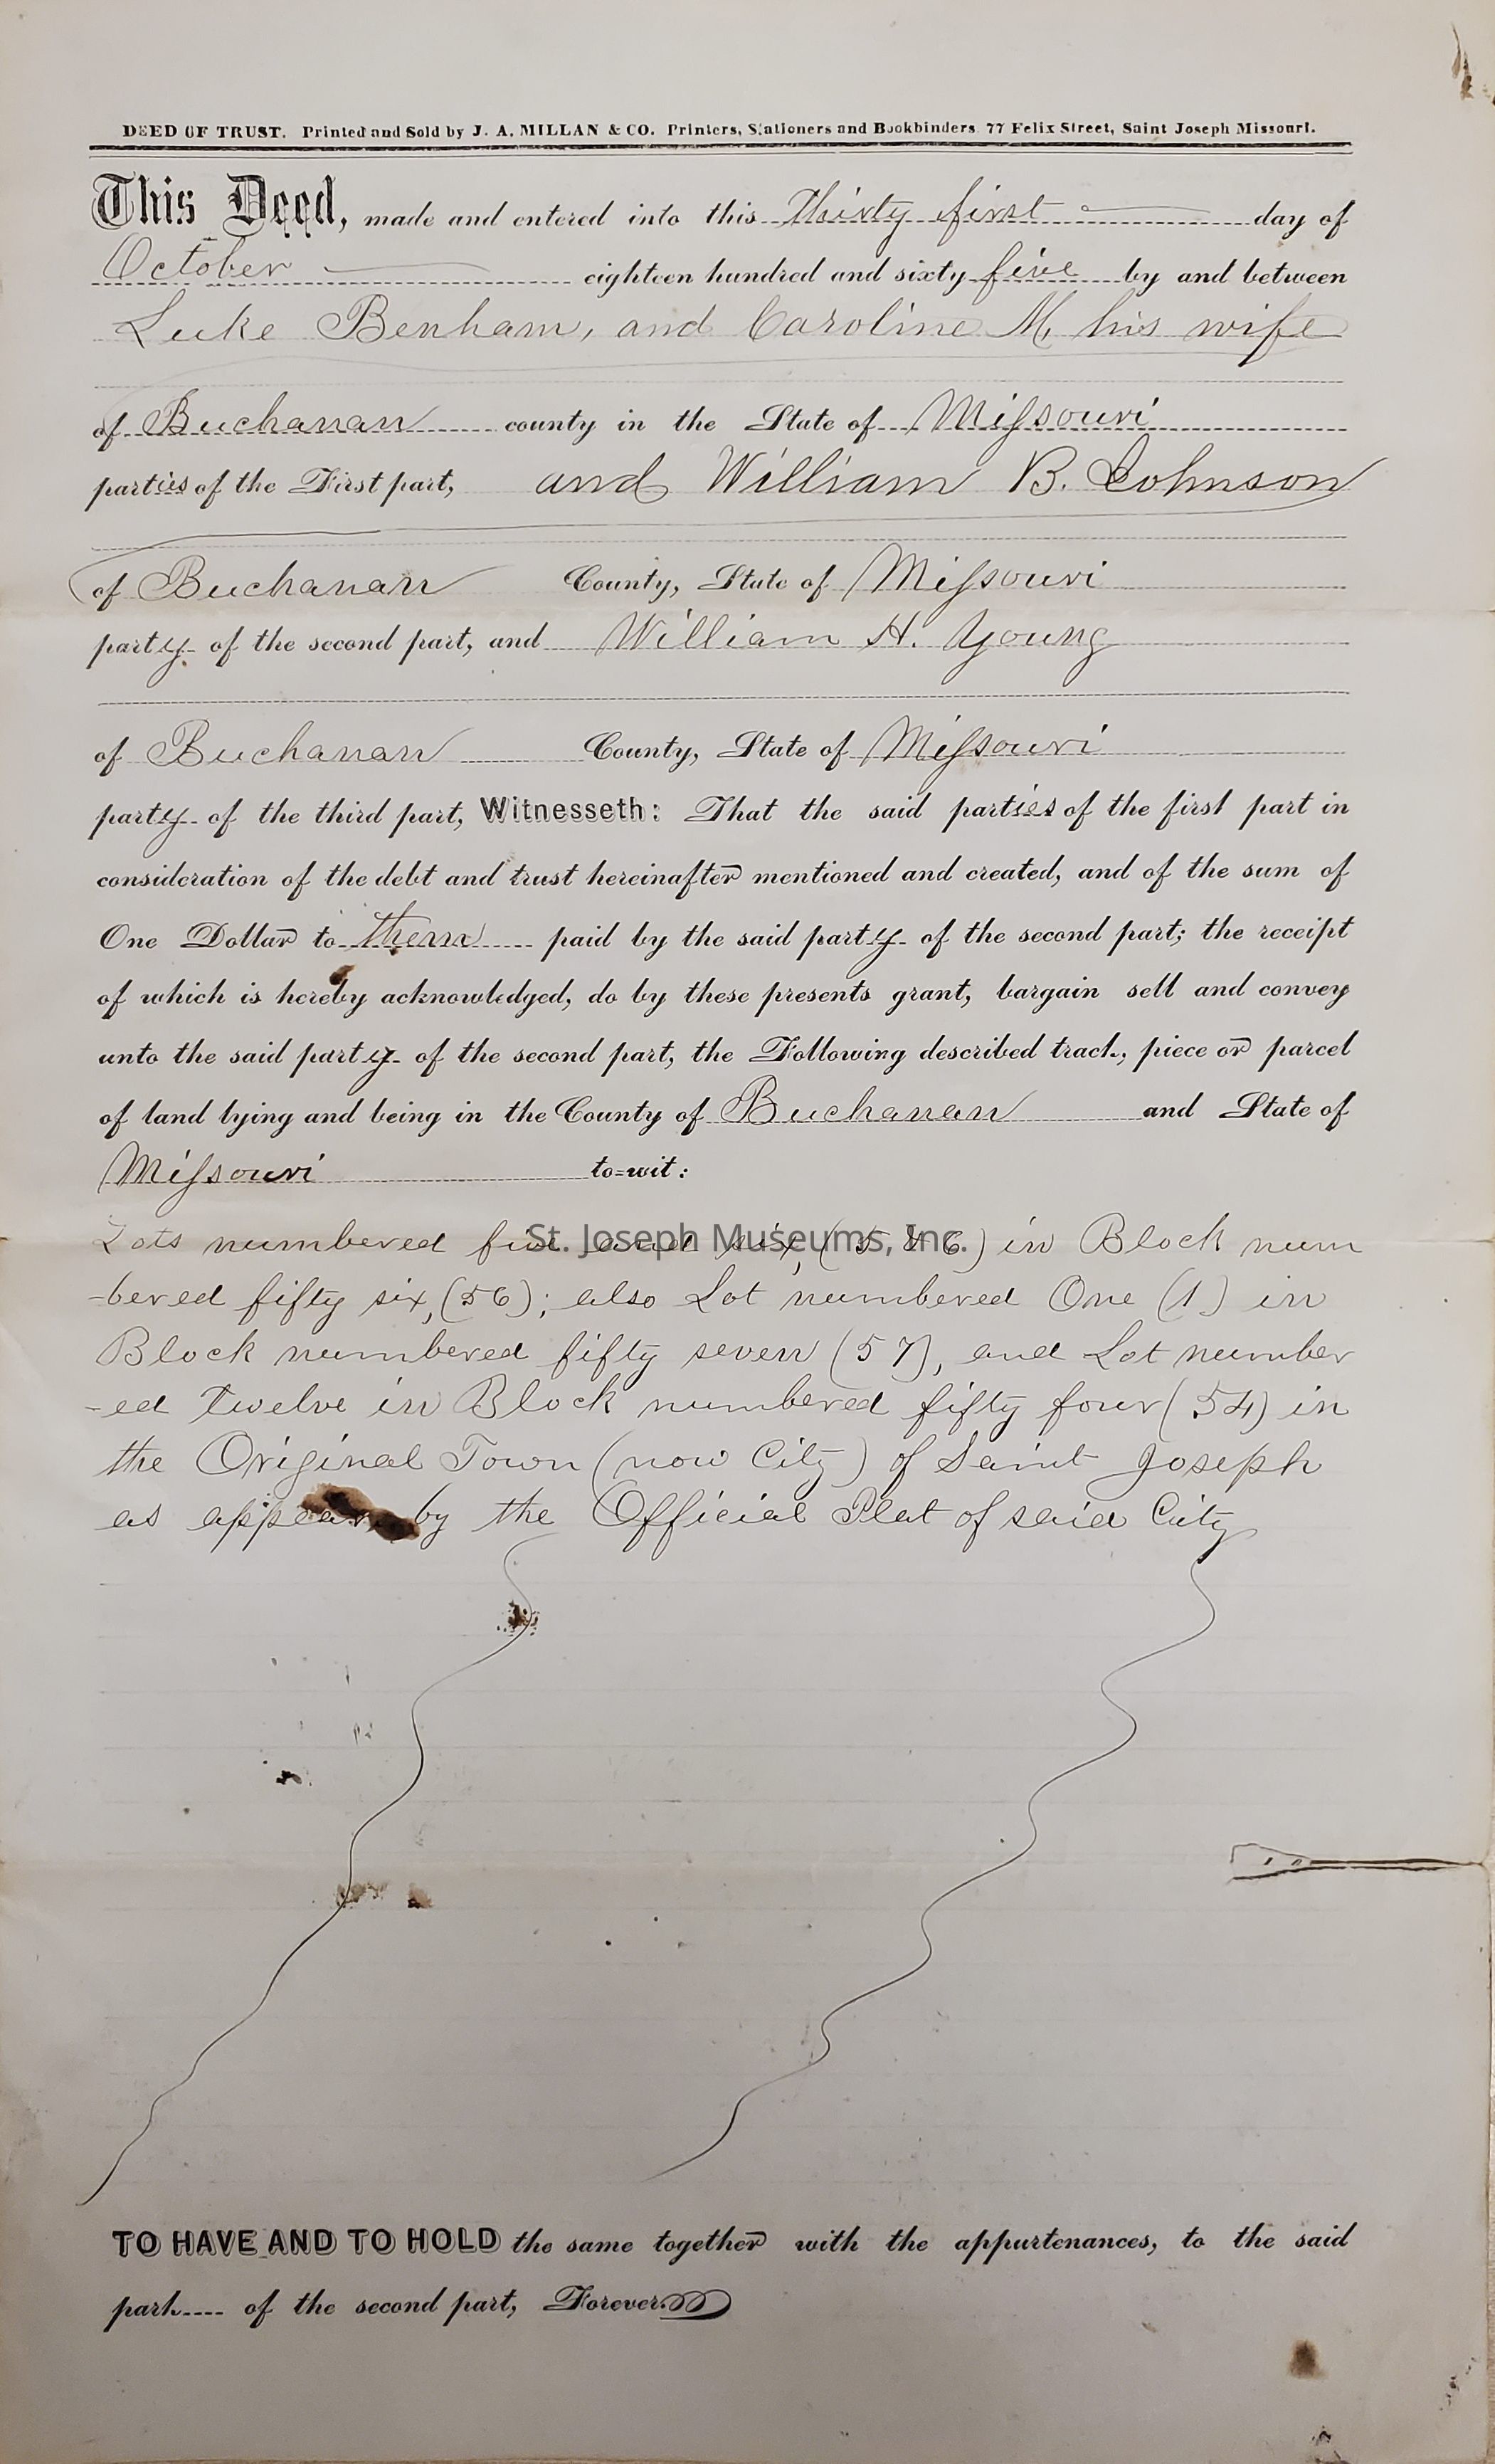 DEED OF TRUST. Printed and Sold by J. A. MILLAN & CO. Printers, Stationers and Bookbinders 77 Felix Street, Saint Joseph Missouri.
This Deed, made and entered into this Thirty first day of
October eighteen hundred and sixty five by and between
Luke Benham, and Caroline M, his wife
of Buchanan county in the State of Missouri
parties of the First part, and William B. Johnson
of Buchanan County, State of Missouri
party of the second part, and William H. Young
of Buchanan County, State of Missouri
party of the third part, Witnesseth: That the said parties of the first part in
consideration of the debt and trust hereinafter mentioned and created, and of the sum of
One Dollar to them paid by the said party of the second part; the receipt
of which is hereby acknowledged, do by these presents grant, bargain sell and convey
unto the said party of the second part, the Following described tract, piece or parcel
of land lying and being in the County of Buchanan and State of
Missouri to=wit:
Lots numbered five and six, (5 & 6) in Block num
St. Joseph Museums, Inc.
-bered fifty six, (56); also Lot numbered One (1) in
Block numbered fifty seven (57), and Lot number
-ed twelve in Block numbered fifty four (54) in
the Original Town (now City) of Saint Joseph
as appears by the Official Plat of said City
TO HAVE AND TO HOLD the same together with the appurtenances, to the said
part---- of the second part, Forever.